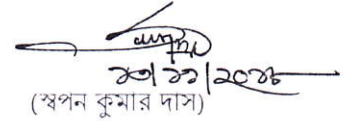 ২৩/১১/২০১৮
(স্বপন কুমার দাস)